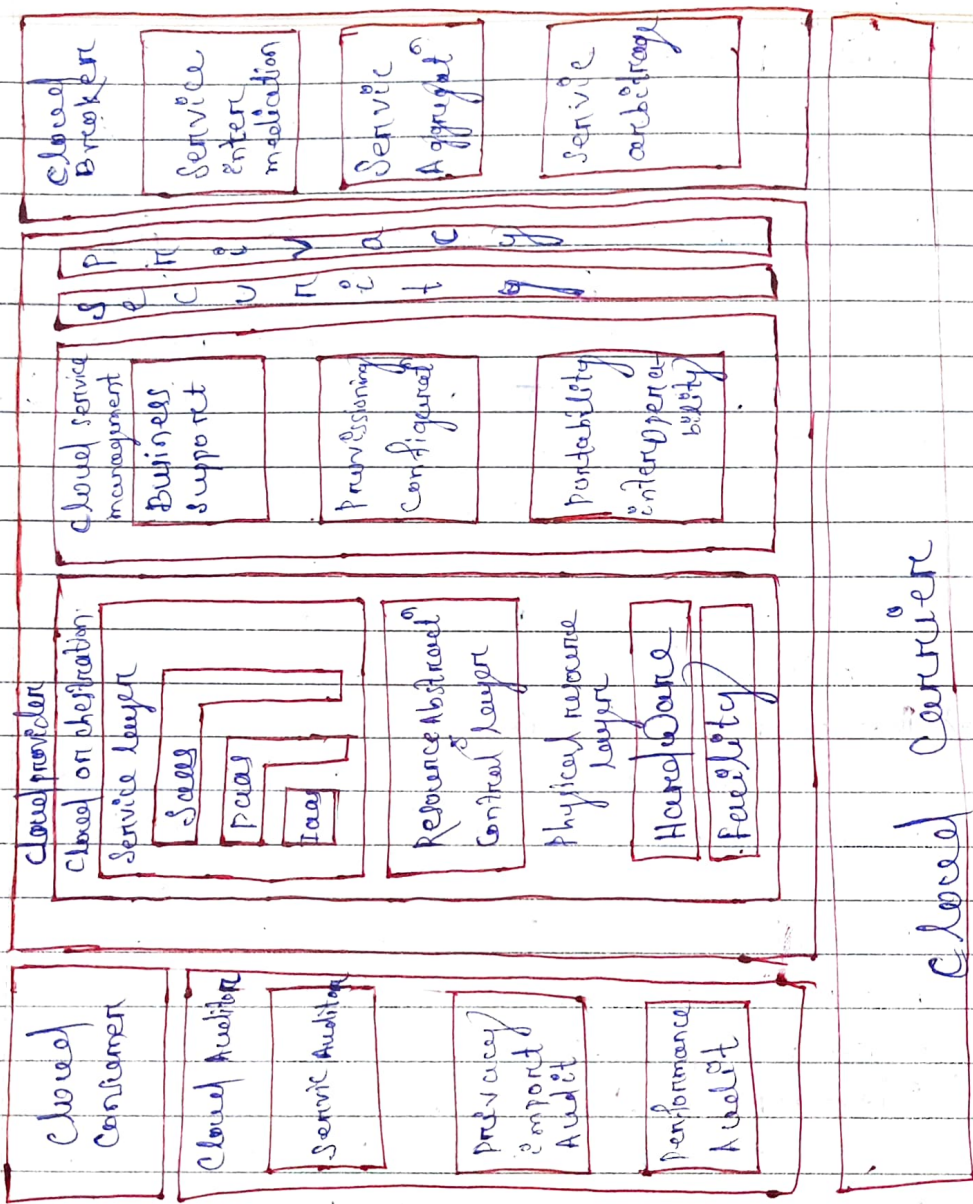 Cloud
Consumer
Cloud Auditor
Servic Auditor
Privacy
import
Audit
Performance
Audit
Cloud provider
Cloud orchestration
Service layer
Saas
Paas
Iaas
Resource Abstract^n
Control layer
Physical resource
layer
Hardware
Facility
Cloud service
management
Business
Support
Provissioning
Configurat^n
Portability
interopera-
bility
Security
Privacy
Cloud
Broker
Service
inter
mediation
Servic
Aggregat^n
Servic
arbitrage
Cloud Carrier